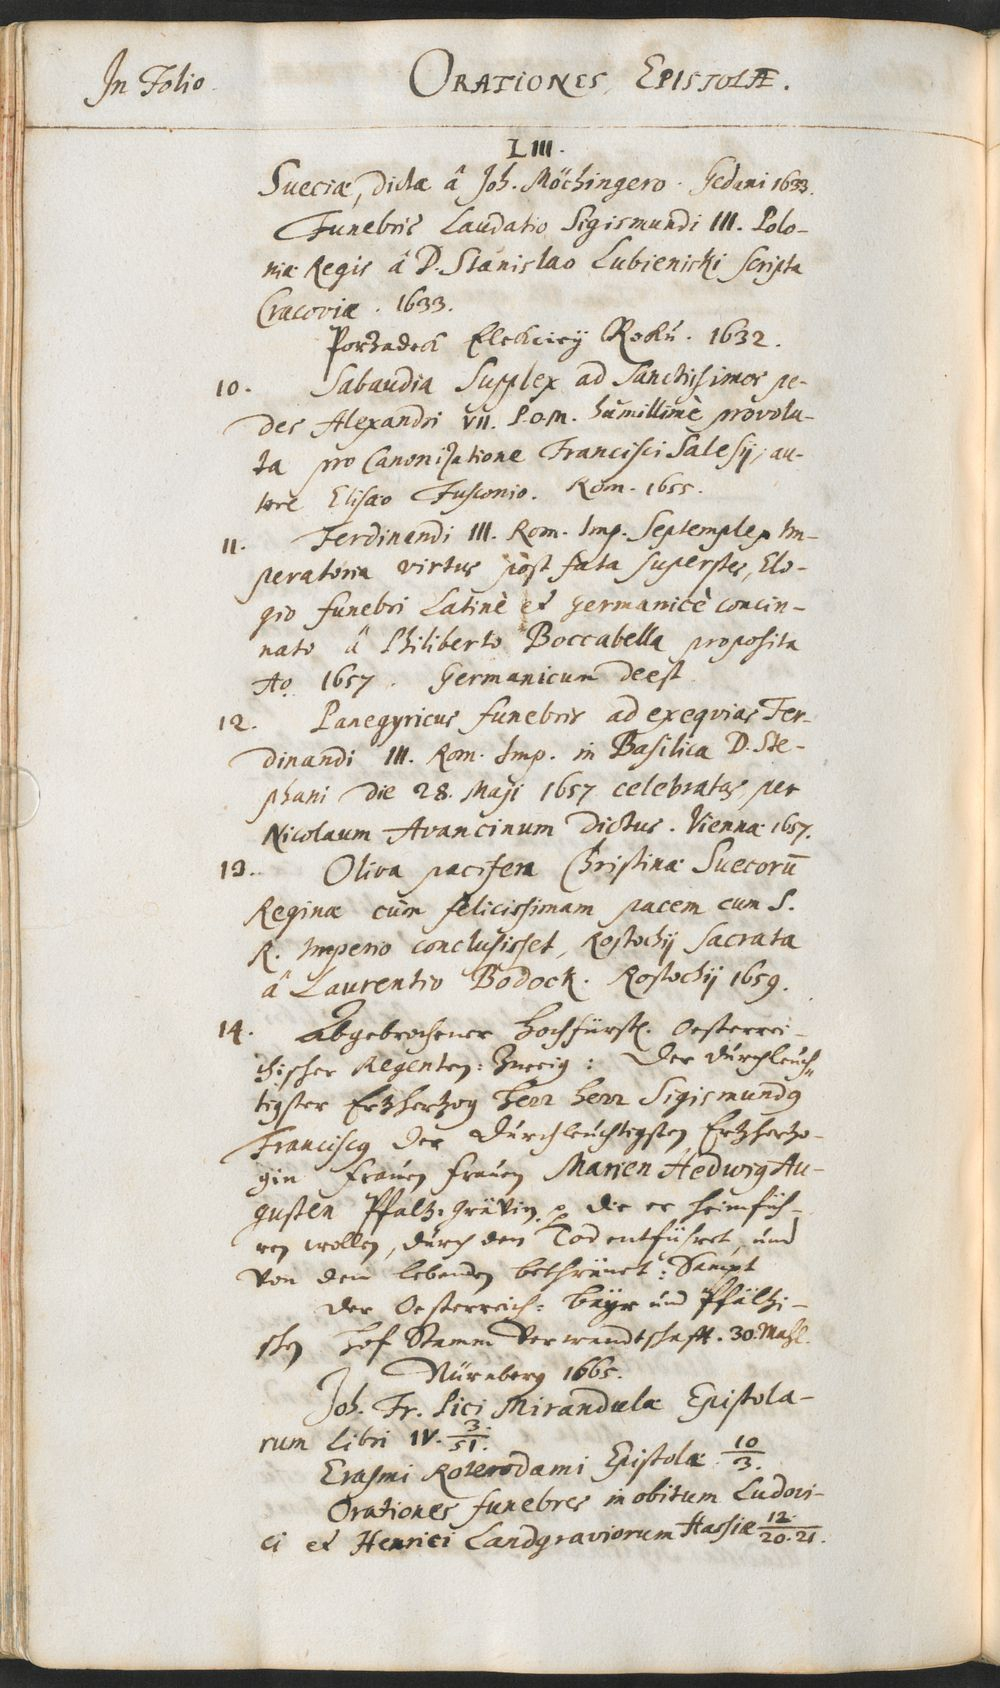 In Folio.
ORATIONES, EPISTOLÆ.
LIII.
Sueciæ, dictæ â Joh. Möchingero. Gedani 1633.
Funebris Laudatio Sigismundi III. Polo-
niæ Regis â D. Stanislao Lubienicki scripta
Cracoviæ. 1633.
Porzadeck Elekciey Roku. 1632.
10. Sabaudia Supplex ad Sanctissimos pe-
des Alexandri VII. P.O.M. humillimè provolu-
ta pro Canonizatione Francisci Salesij, au-
tore Elisæo Fusconio. Rom. 1655.
11. Ferdinandi III. Rom. Imp. Septemplex Im-
peratoria virtus post fata superstes, Elo-
gio funebri Latinè et Germanicè concin-
nato â Philiberto Boccabella proposita
Ao. 1657. Germanicum deest
12. Panegyricus funebris ad exeqvias Fer-
dinandi III. Rom. Imp. in Basilica D. Ste-
phani die 28. Maji 1657 celebratas, per
Nicolaum Avancinum dictus. Viennæ 1657.
13. Oliva pacifera Christinæ Suecorū
Reginæ cùm felicissimam pacem cum S.
R. Imperio conclusisset, Rostochij sacrata
â Laurentio Bodock. Rostochij 1659.
14. Abgebrochener Hochfürstl. Oesterrei-
chischer Regenten-Zweig: Der durchleuch-
tigster Ertzhertzog Herr Herr Sigismundg
Franciscg der durchleuchtigsten Ertzhertzo-
gin Frauen Frauen Marien Hedwig Au-
gusten Pfaltz-Grävin p die er heimfüh-
ren wollen, durch den Tod entführet und
von den lebenden bethränet: Sampt
der Oesterreich- Bäyr und Pfältzi-
schen Hof Stamm Verwandtschafft. 30. Mahl.
Nürnberg 1665.
Joh. Fr. Pici Mirandulæ Epistola-
rum Libri IV. 3./51.
Erasmi Roterodami Epistolæ 10/3.
Orationes funebres in obitum Ludovi-
ci et Henrici Landgraviorum Hassiæ 12./20.21.